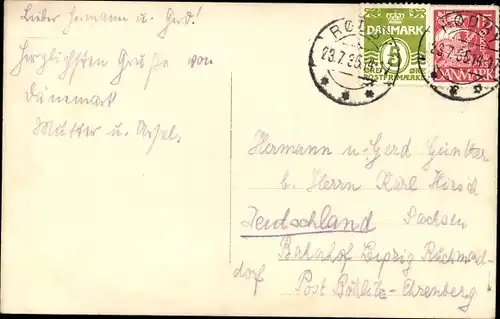 Lieber Hermann u. Gerd!
Herzlichsten Grüße von
Dänemark
Mutter u.
RØDBY
23.7.35.
DANMARK
5
POSTFRIMÆRKE
RØDBY
23.7.35.
15
DANMARK
Hermann u. Gerd Günther
b. Herrn Karl Hirsch
Deutschland Sachsen
Bahnhof Leipzig Rückmars-
dorf Post Böhlitz-Ehrenberg